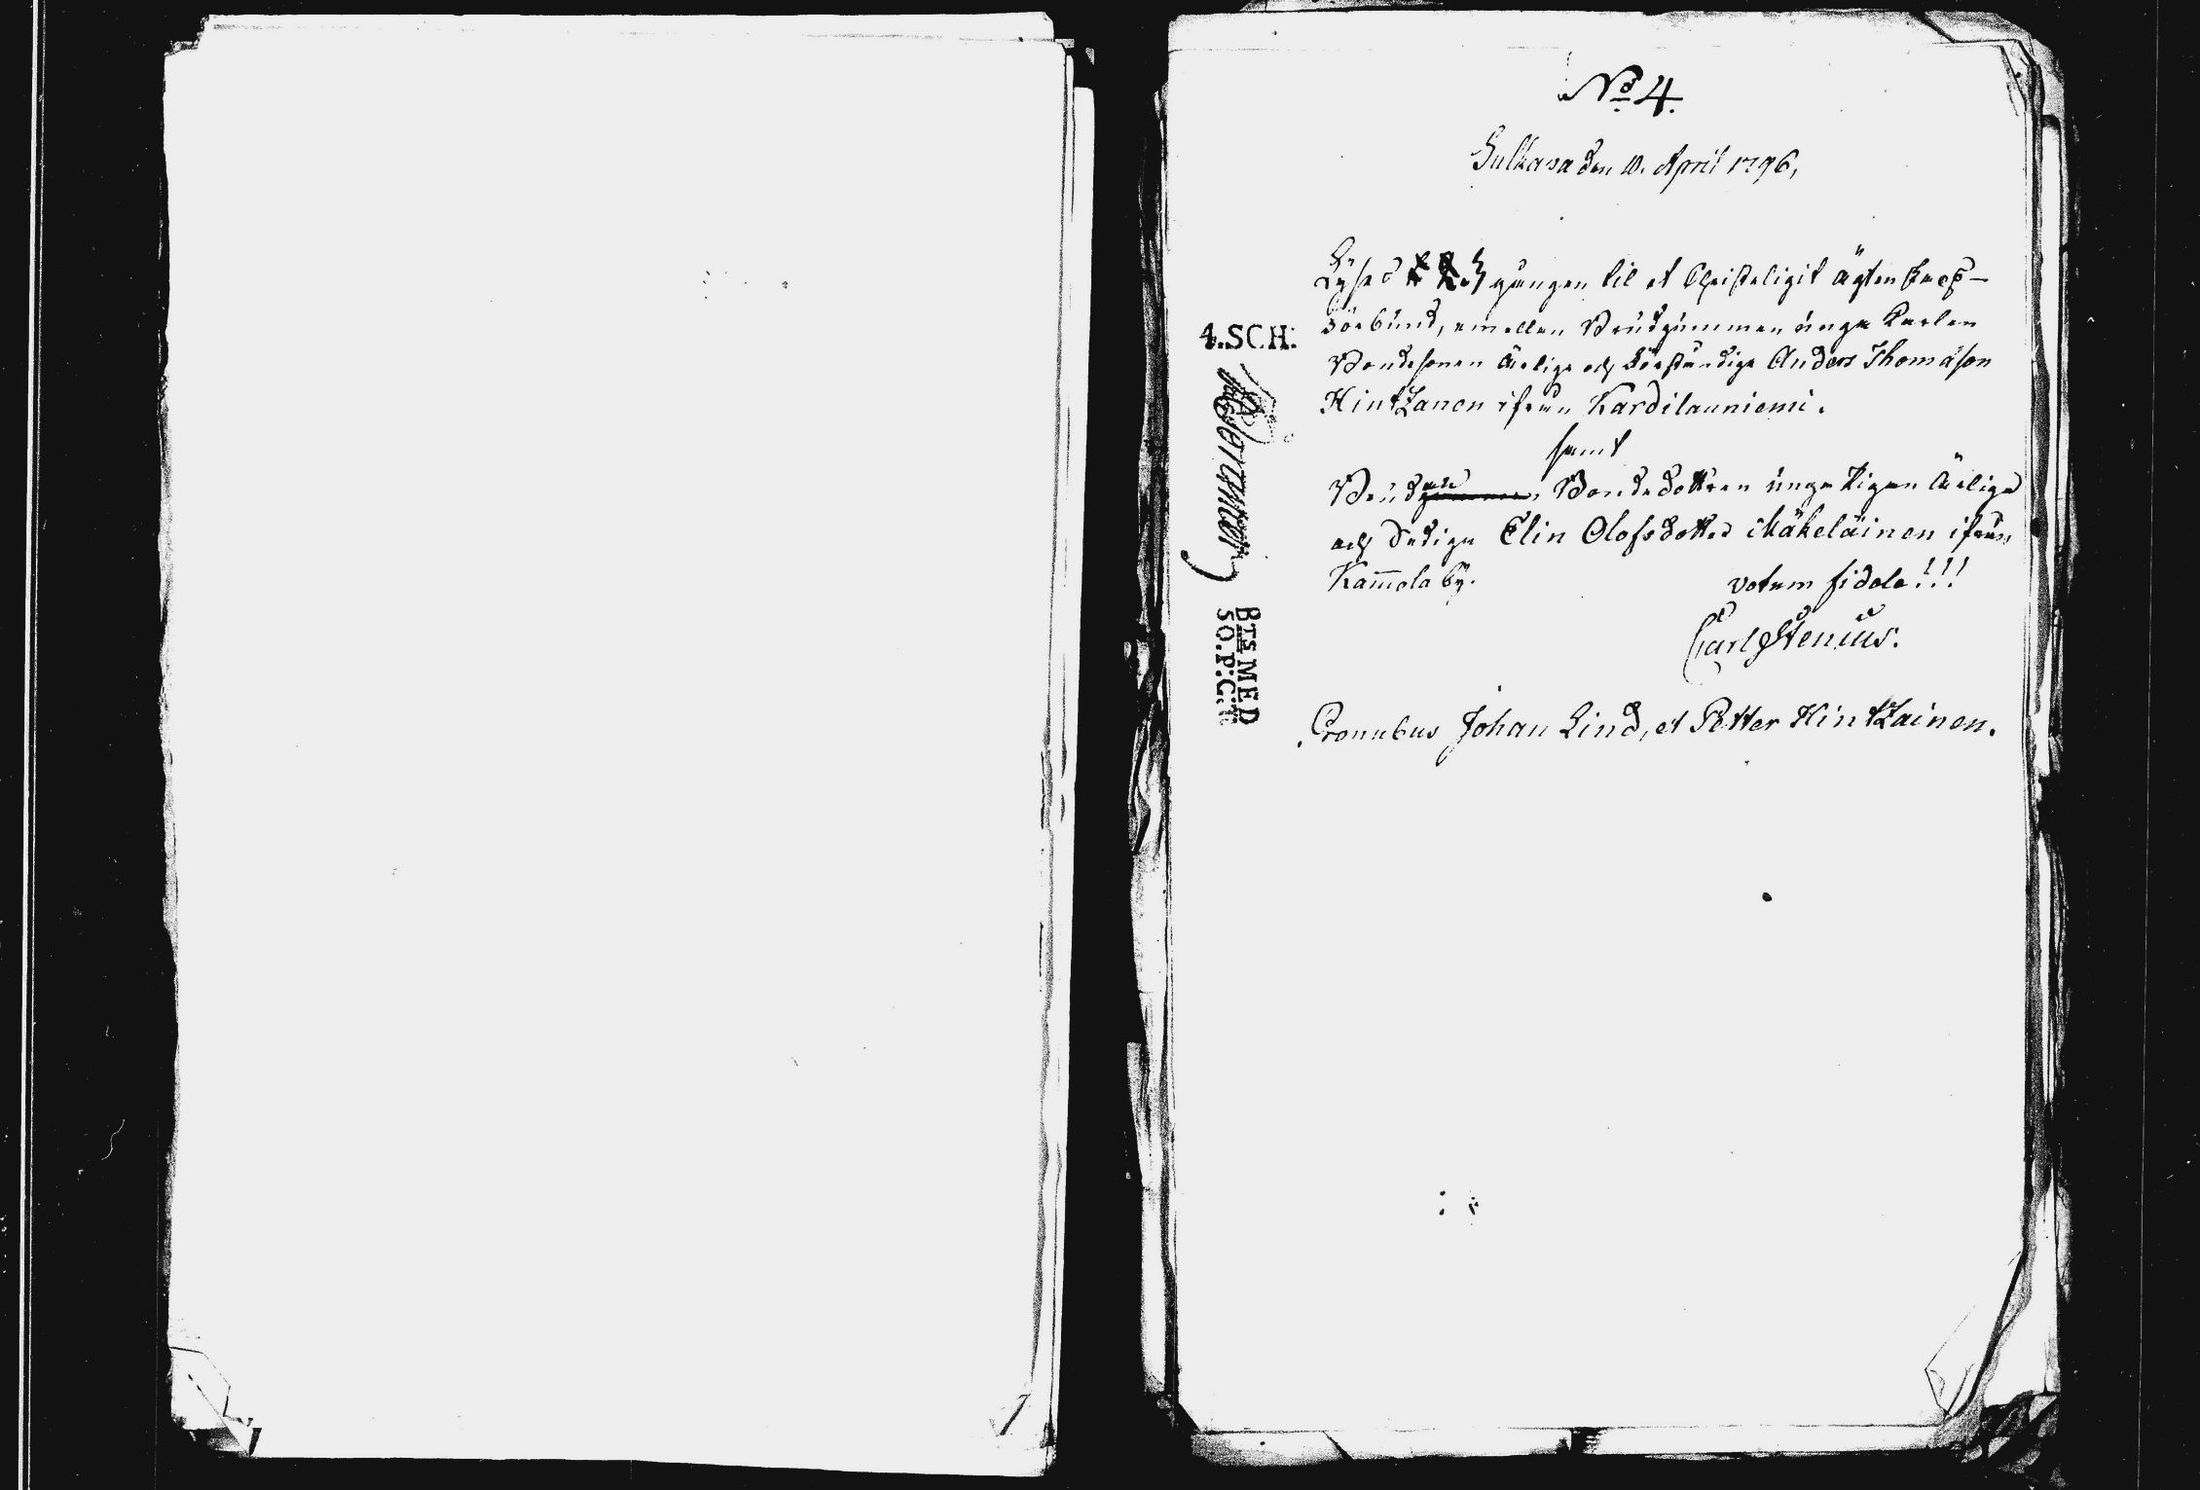 No 4.
Sulkava den 10. April 1796,
Lyses gången til et Christeligit ägtenskaps-
förbund, emellan Brudgummen unga Karlen
Bondesonen ärlige och förståndige Anders Thomasson
Hintzanen ifrån Kardilanniemi.
samt
Bruden Bondedottren unga Pigan ärliga
och dediga Elin Olofsdotter Mäkeläinen ifrån
Kam̄ela by.
votum fidele!!!
Carl Stenius.
Pronubus Johan Lind, et Petter Hintzainen.
4.SCH:
BTS MED
50.P:C: